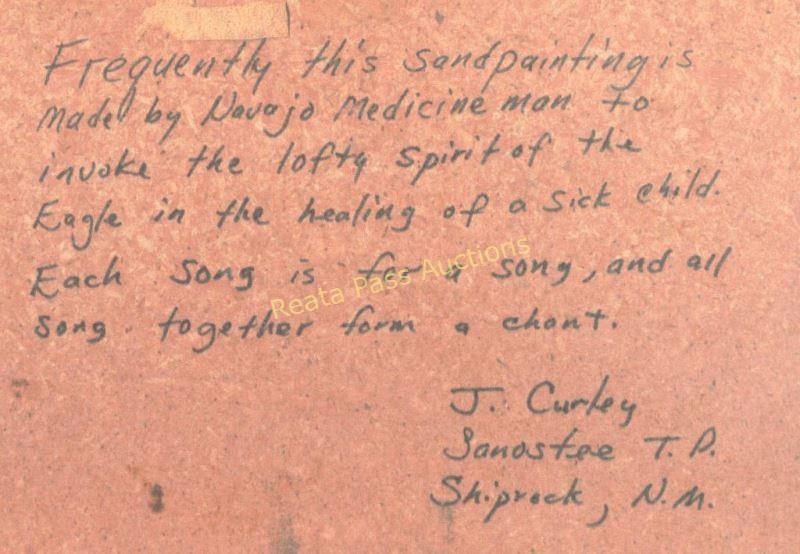 Frequently this sandpainting is
made by Navajo Medicine man to
invoke the lofty spirit of the
Eagle in the healing of a sick child.
Each song is for a song, and all
song together form a chant.
Reata Pass Auctions
J. Curley
Sanostee T.P.
Shiprock, N.M.